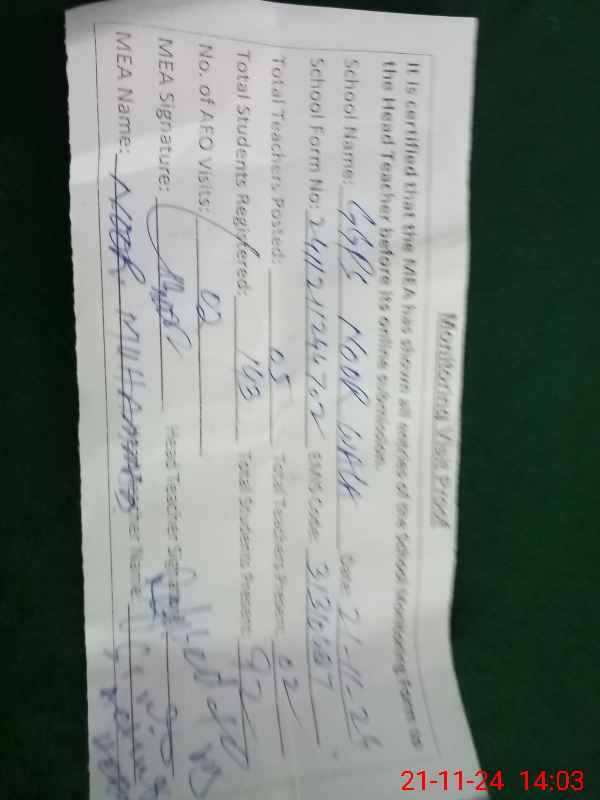 Monitoring Visit Proof
It is certified that the MEA has shown all entries of the School Monitoring Form to
the Head Teacher before its online submission.
School Name: GGPS NOOR WALA Date: 21-11-24
School Form No: EMIS Code:
Total Teachers Posted: 05 Total Teachers Present: 02
Total Students Registered: 143 Total Students Present: 92
No. of AEO Visits: 02
MEA Signature: Head Teacher Signature
MEA Name: NOOR MUHAMMAD Name:
21-11-24 14:03